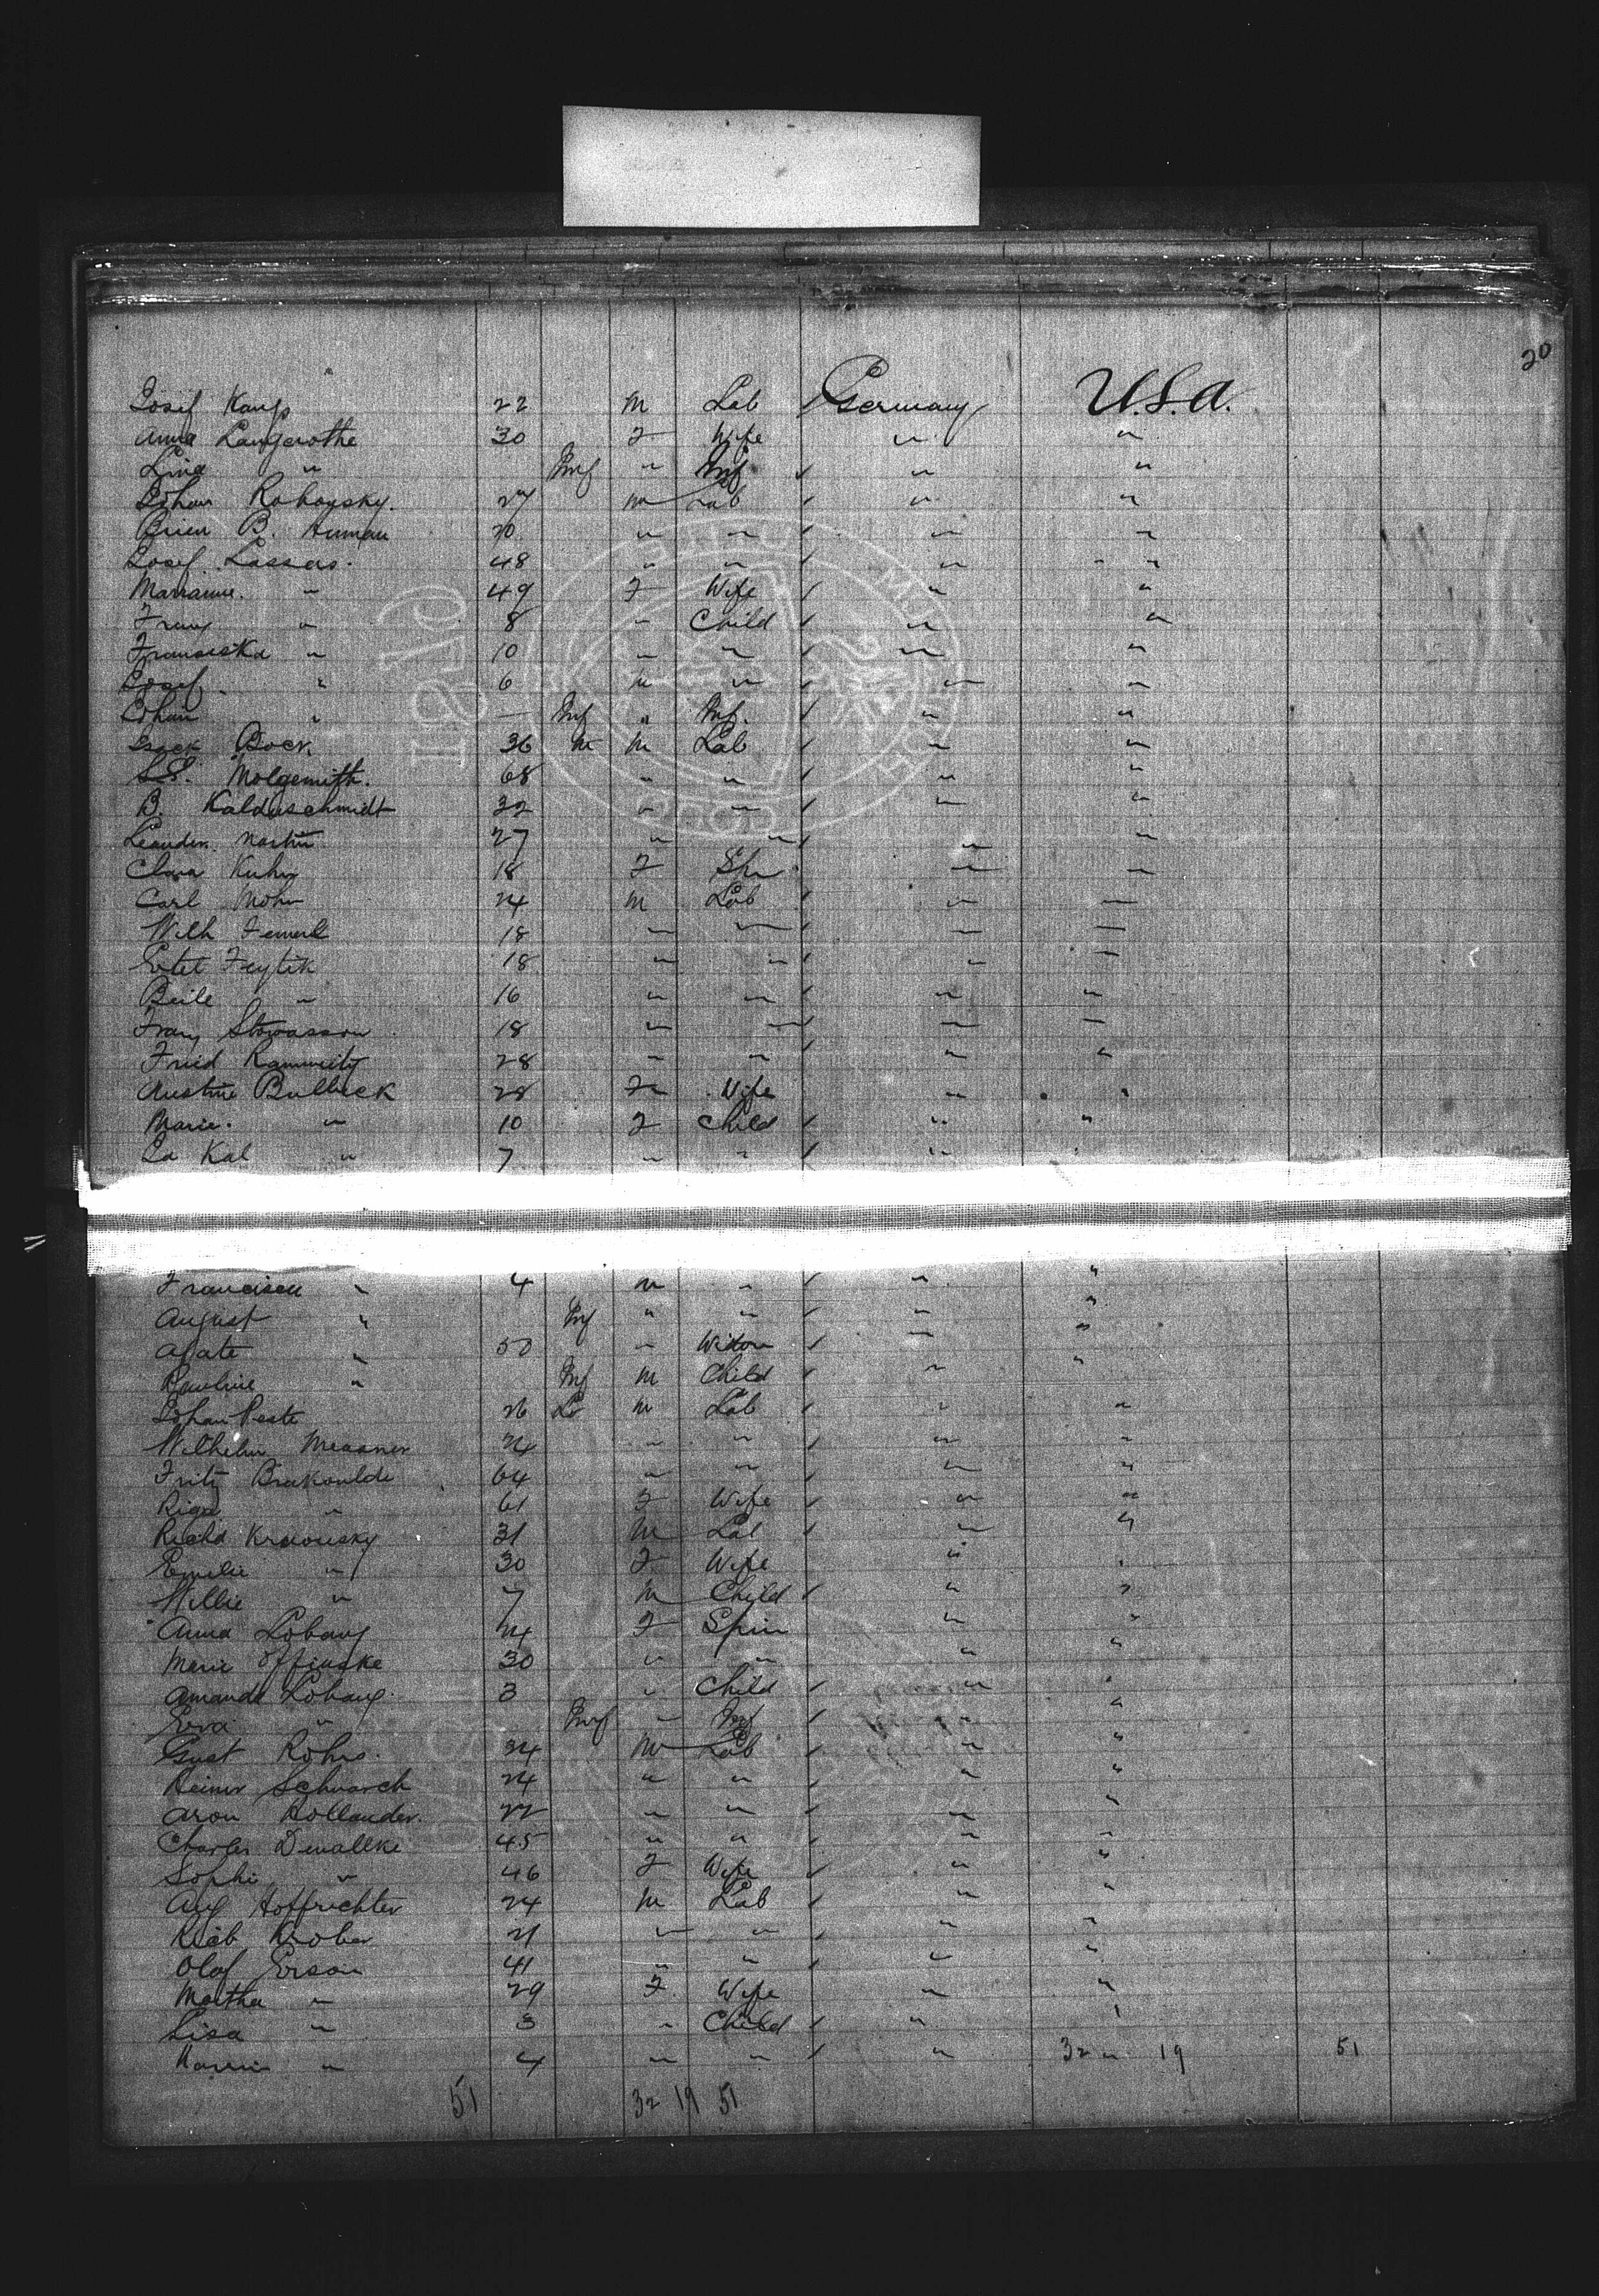 20
Josif Kamp 22 M Lab Germany U.S.A.
Anna Langerothe 30 F Wife " "
Lina " Inf " Inf " "
Johan Rohoysky. 27 M Lab " "
Brien B. 20 " " " "
Josef Lassers. 48 " " " "
Marianne. " 49 F Wife " "
Franz " 8 " Child " "
Franciska " 10 " " " "
Josef " 6 " " " "
Johan " — Inf " Inf. " "
Isack Bock 36 M M Lab " "
Molgemith. 68 " " " "
B. Kaldeschmidt 32 " " " "
Leander Martin 27 " " " "
Clara Kuhn 18 F " "
Carl Mohr 24 M Lab " "
Wilh 18 " " " "
Feytik 18 " " " "
Beile " 16 " " " "
Franz Stowasson 18 " " " "
Fried 28 " " " "
Austine Bulbeck 28 F Wife " "
Marie. " 10 F Child " "
La Kal " 7 " " "
Francisca " 4 M " " "
August " Inf " " " "
Agate " 50 " Widow " "
Pauline " Inf M Child " "
Johan Peste 26 M Lab " "
Wilhelm Meassner 24 " " " "
Fritz Brakoulde 64 " " " "
Riga " 61 F Wife " "
Richd Krawusky 31 M Lab " "
Emilie " 30 F Wife " "
Willie " 7 M Child " "
Anna Lobang 24 F Spin " "
Marie Offinske 30 " " " "
Amanda Lobang. 3 " Child " "
Eva " Inf " Inf " "
Gust Rohrs. 34 M Lab " "
Heiner Schwarck 24 " " " "
Aron Hollander. 22 " " " "
Charles Dewallke 45 " " " "
Sophi " 46 F Wife " "
Aug Hoffrichter 24 M Lab " "
Krober 21 " " " "
Olof Erson 41 " " " "
Martha " 29 F. Wife " "
Lisa " 3 " Child " "
" 4 " " " 32 " 19 51
51 32 19 51